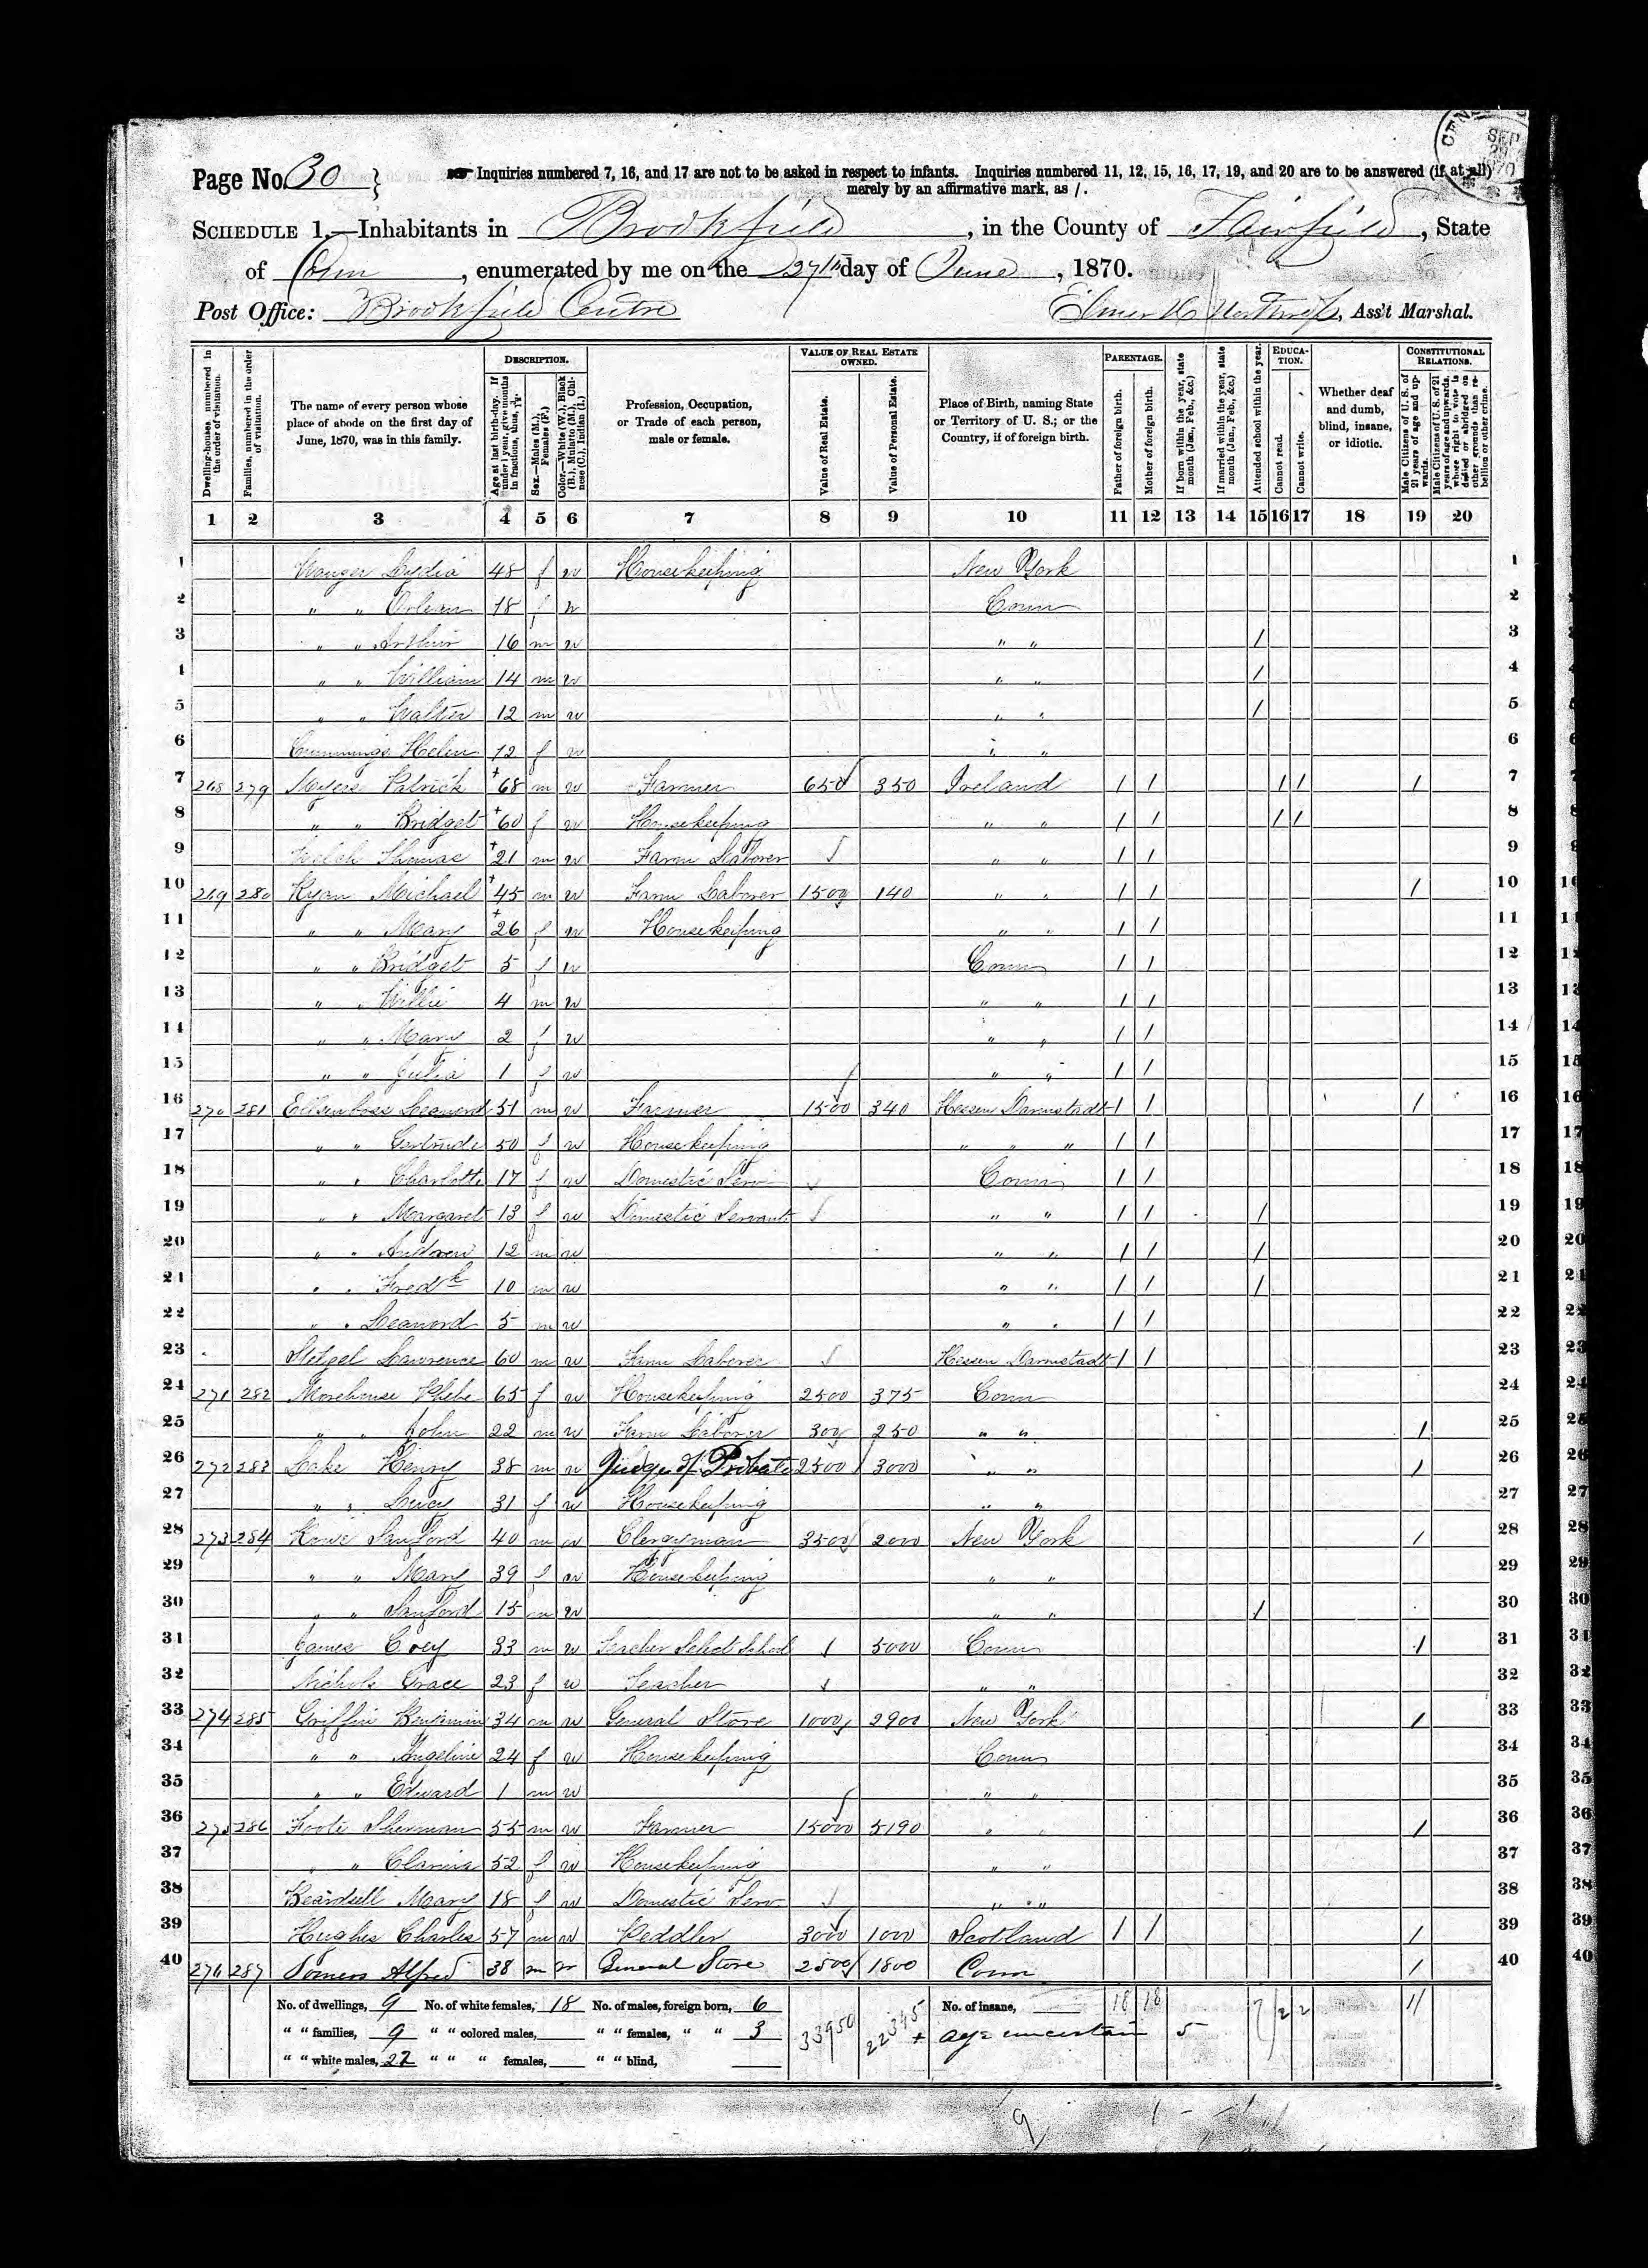 Page No. 30 } Inquiries numbered 7, 16, and 17 are not to be asked in respect to infants. Inquiries numbered 11, 12, 15, 16, 17, 19, and 20 are to be answered (if at all)
merely by an affirmative mark, as /.
SCHEDULE 1.—Inhabitants in Brookfield, in the County of Fairfield, State
of Conn, enumerated by me on the 27th day of June, 1870.
Post Office: Brookfield Centre
Elmer H Northrop, Ass't Marshal.
Dwelling-houses, numbered in the order of visitation.
Families, numbered in the order of visitation.
The name of every person whose place of abode on the first day of June, 1870, was in this family.
DESCRIPTION.
Age at last birth-day. If under 1 year, give months in fractions, thus,
Sex.—Males (M.), Females (F.)
Color.—White (W.), Black (B.), Mulatto (M.), Chinese (C.), Indian (I.)
Profession, Occupation, or Trade of each person, male or female.
VALUE OF REAL ESTATE OWNED.
Value of Real Estate.
Value of Personal Estate.
Place of Birth, naming State or Territory of U. S.; or the Country, if of foreign birth.
PARENTAGE.
Father of foreign birth.
Mother of foreign birth.
If born within the year, state month (Jan., Feb., &c.)
If married within the year, state month (Jan., Feb., &c.)
Attended school within the year.
EDUCATION.
Cannot read.
Cannot write.
Whether deaf and dumb, blind, insane, or idiotic.
CONSTITUTIONAL RELATIONS.
Male Citizens of U. S. of 21 years of age and upwards.
Male Citizens of U. S. of 21 years of age and upwards, whose right to vote is denied or abridged on other grounds than rebellion or other crime.
1 2 3 4 5 6 7 8 9 10 11 12 13 14 15 16 17 18 19 20
1 Lydia 48 f w Housekeeping New York 1
2 " " 18 f w Conn 2
3 " " Arthur 16 m w " " / 3
4 " " William 14 m w " " / 4
5 " " Walter 12 m w " " / 5
6 Cummings Helen 12 f w " " 6
7 268 279 Myers Patrick +68 m w Farmer 650 350 Ireland / / / / / 7
8 " " Bridget +60 f w Housekeeping " " / / / / 8
9 Welch Thomas +21 m w Farm Laborer " " / / 9
10 269 280 Ryan Michael +45 m w Farm Laborer 1500 140 " " / / / 10
11 " " Mary +26 f w Housekeeping " " / / 11
12 " " Bridget 5 f w Conn / / 12
13 " " Willie 4 m w " " / / 13
14 " " Mary 2 f w " " / / 14
15 " " Julia 1 f w " " / / 15
16 270 281 Leanord 51 m w Farmer 1500 340 Hessen Darmstadt / / / 16
17 " " Gertrude 50 f w Housekeeping " " " / / 17
18 " " Charlotte 17 f w Domestic Serv Conn / / 18
19 " " Margaret 13 f w Domestic Servant " " / / / 19
20 " " Andrew 12 m w " " / / / 20
21 " " Fredk 10 m w " " / / / 21
22 " " Leanord 5 m w " " / / 22
23 Stetzel Lawrence 60 m w Farm Laborer Hessen Darmstadt / / 23
24 271 282 Morehouse Phebe 65 f w Housekeeping 2500 375 Conn 24
25 " " John 22 m w Farm Laborer 300 250 " " / 25
26 272 283 Lake Henry 38 m w Judge of Probate 2500 3000 " " / 26
27 " " Lucy 31 f w Housekeeping " " 27
28 273 284 Howe Sanford 40 m w Clergyman 3500 2000 New York / 28
29 " " Mary 39 f w Housekeeping " " 29
30 " " Sanford 15 m w " " / 30
31 James 33 m w Teacher Select School 5000 Conn / 31
32 Nichols Grace 23 f w Teacher " " 32
33 274 285 Griffin Benjamin 34 m w General Store 1000 2900 New York / 33
34 " " Angeline 24 f w Housekeeping Conn 34
35 " " Edward 1 m w " " 35
36 275 286 Foote Sherman 55 m w Farmer 15000 5190 " " / 36
37 " " 52 f w Housekeeping " " 37
38 Beardsell Mary 18 f w Domestic Serv " " 38
39 Hughes Charles 57 m w Peddler 3000 1000 Scotland / / / 39
40 276 287 Somers Alfred 38 m w General Store 2500 1800 Conn / 40
No. of dwellings, 9 No. of white females, 18 No. of males, foreign born, 6 No. of insane, 18 18
" " families, 9 " " colored males, " " females, " " 3 33950 22345 + age uncertain 5 7 2 2 11
" " white males, 22 " " " females, " " blind,